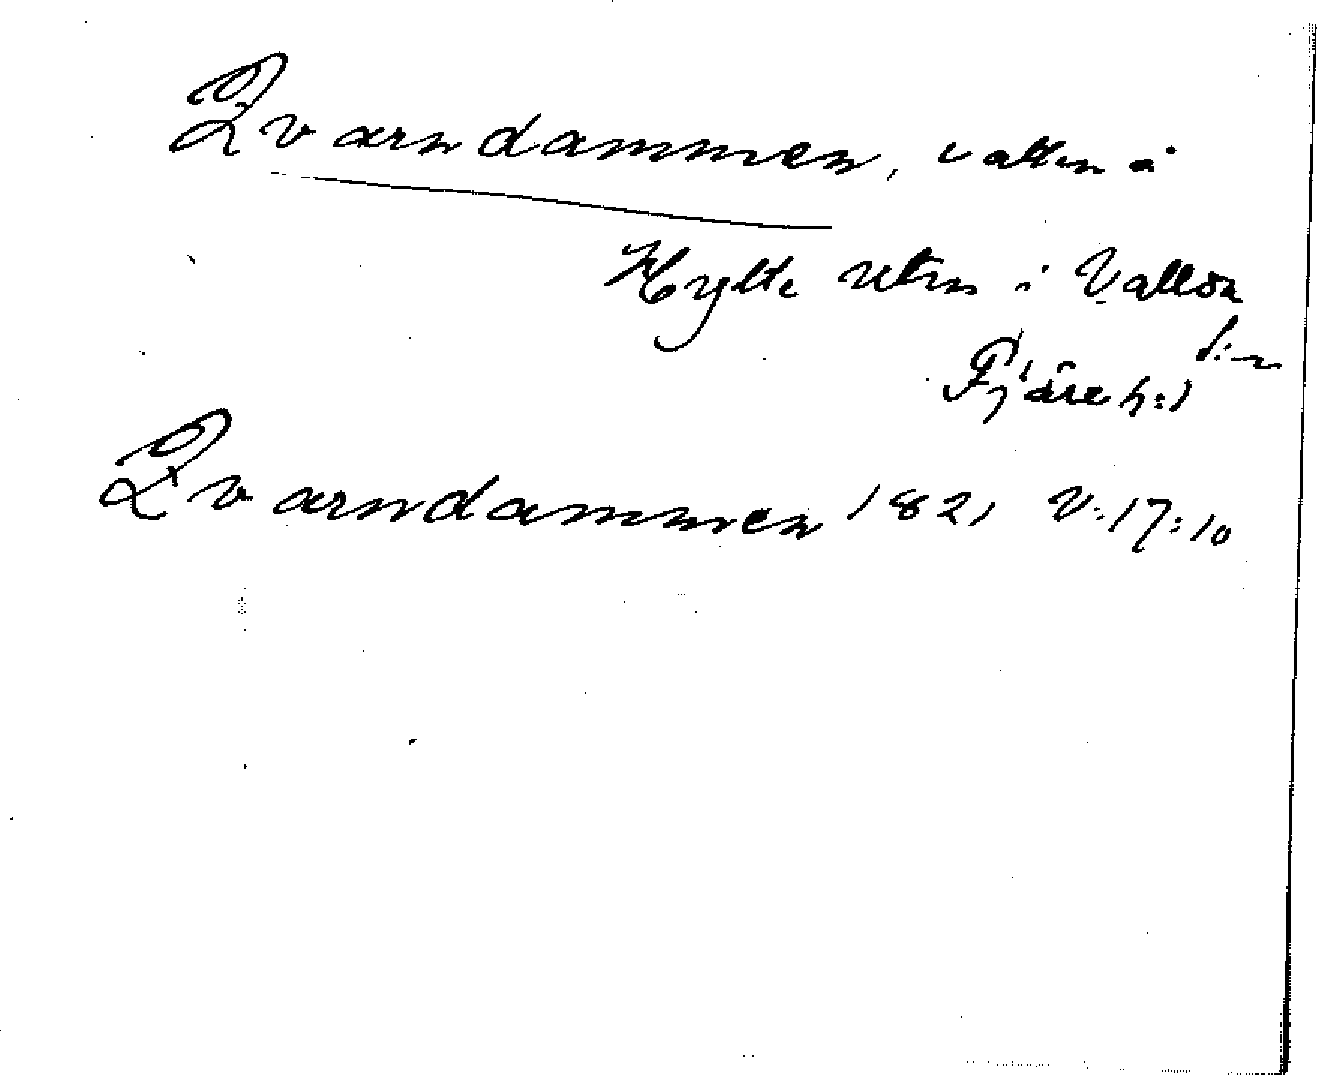 Qvarndammen, vatten å
Hylte utm i Valda
s:n
Fjäre h:d
Qvarndammen 1821 V:17:10